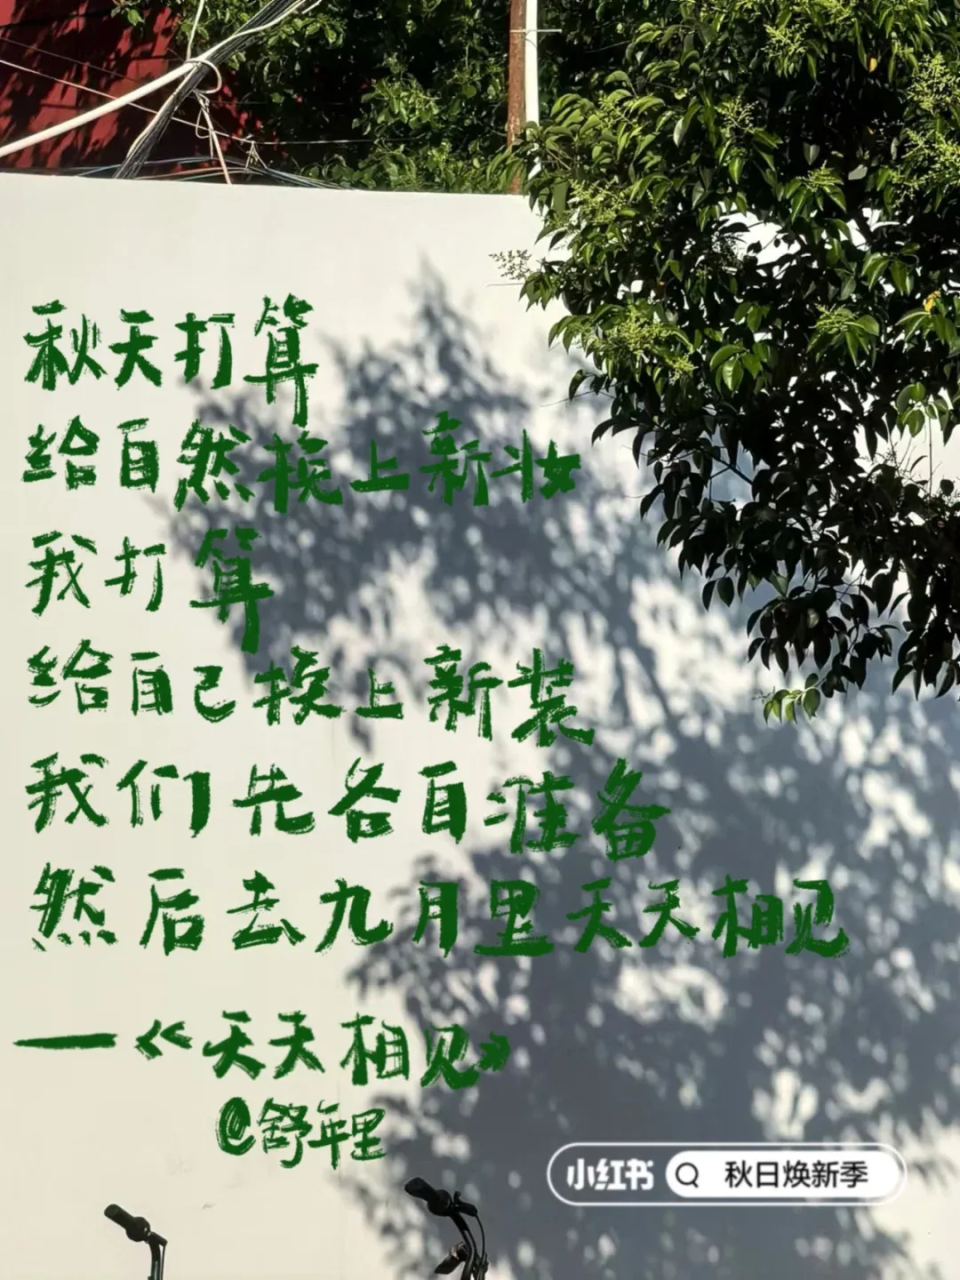 秋天打算
给自然换上新妆
我打算
给自己换上新装
我们先各自准备
然后去九月里天天相见
—《天天相见》
@舒年里
小红书 秋日焕新季